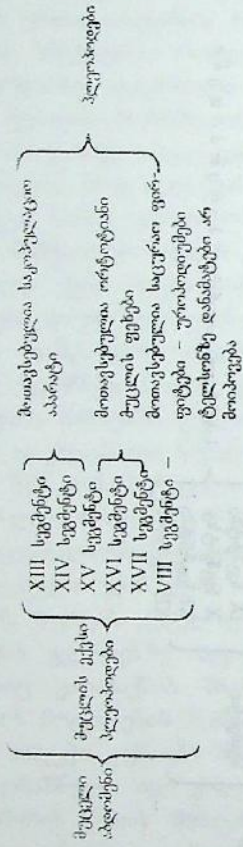 მუცელი
აბდომენი
მუცლის ექვსი
პლეოპოდები
XIII სეგმენტი
XIV სეგმენტი
XV სეგმენტი
XVI სეგმენტი
XVII სეგმენტი
VIII სეგმენტი –
მოთავსებულია საკოპულაციო
აპარატი
მოთავსებულია ორტოტიანი
მუცლის ფეხები
მოთავსებულია საცურაო ფირ-
ფიტები – უროპოდიუმები
ტელსონზე დანამატები არ
მოიპოვება
პლეოპოდები